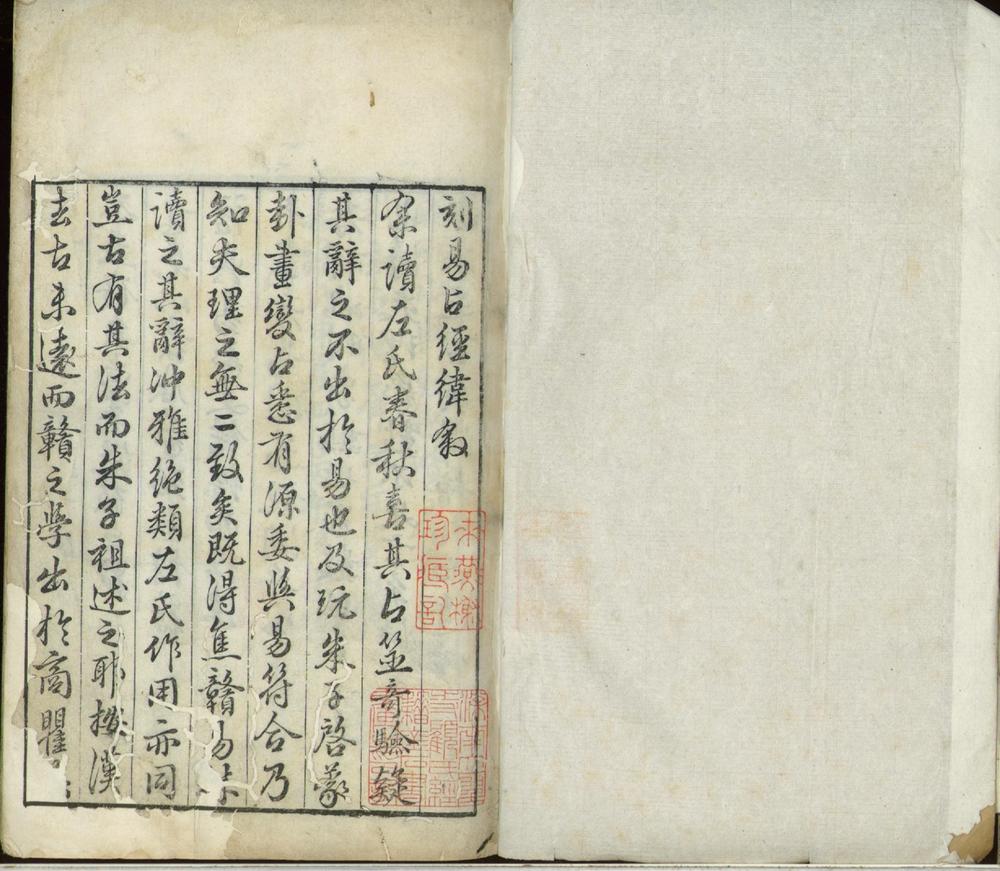 刻易占經緯叙
余讀左氏春秋喜其占筮奇驗疑
其辭之不出於易也及玩朱子啓蒙
卦畫變占悉有源委與易符合乃
知夫理之無二致矣既得焦贛易林
讀之其辭冲雅絶類左氏作用亦同
豈古有其法而朱子祖述之耶漢
去古未遠而贛之學出於商瞿